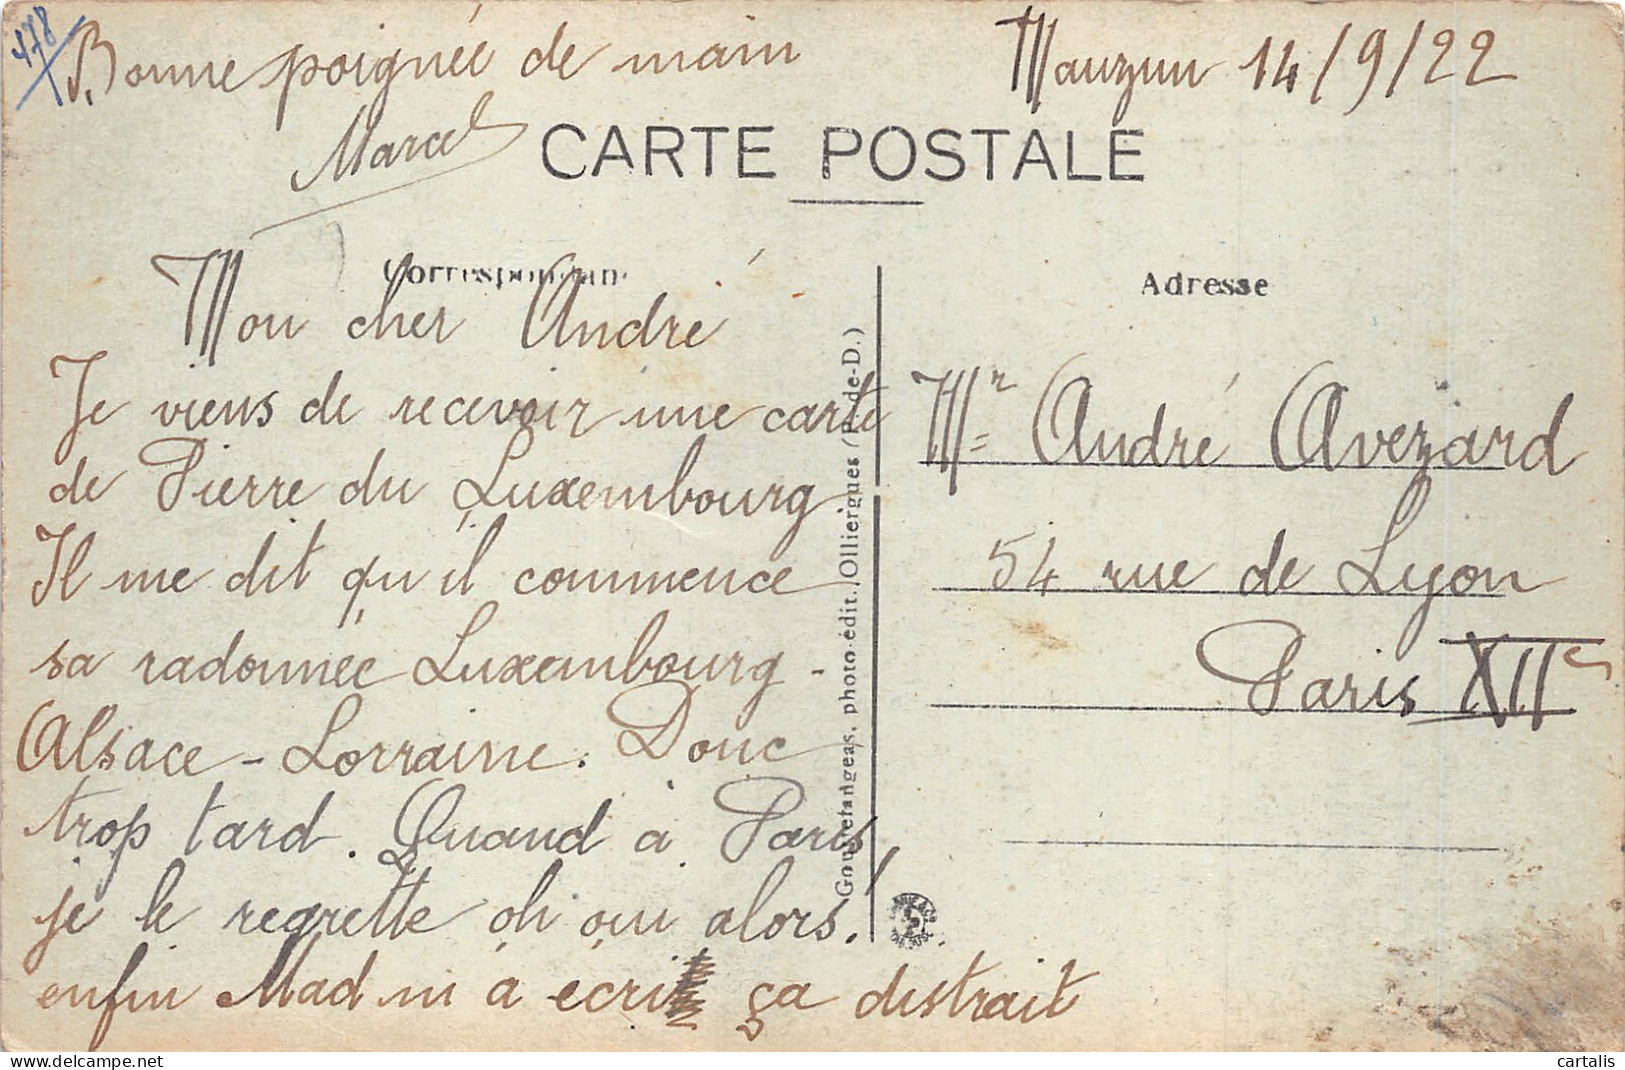 478
Bonne poignée de main
Marcel
Mauzun 14/9/22
CARTE POSTALE
Correspondan
Adresse
Mon cher André
Je viens de recevoir une carte
de Pierre du Luxembourg
Il me dit qu'il commence
sa radonnée Luxembourg -
Alsace - Lorraine. Donc
trop tard. Quand à Paris,
je le regrette oh oui alors!
enfin Mad m'a écrit ça distrait
Gouttefangeas, photo-édit. Olliergues (P.-de-D.)
Mr André Avezard
54 rue de Lyon
Paris XIIe
cartalis